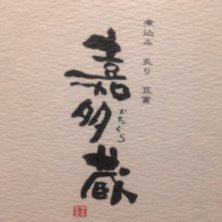 煮込み 炙り 豆富
嘉多蔵
かたくら